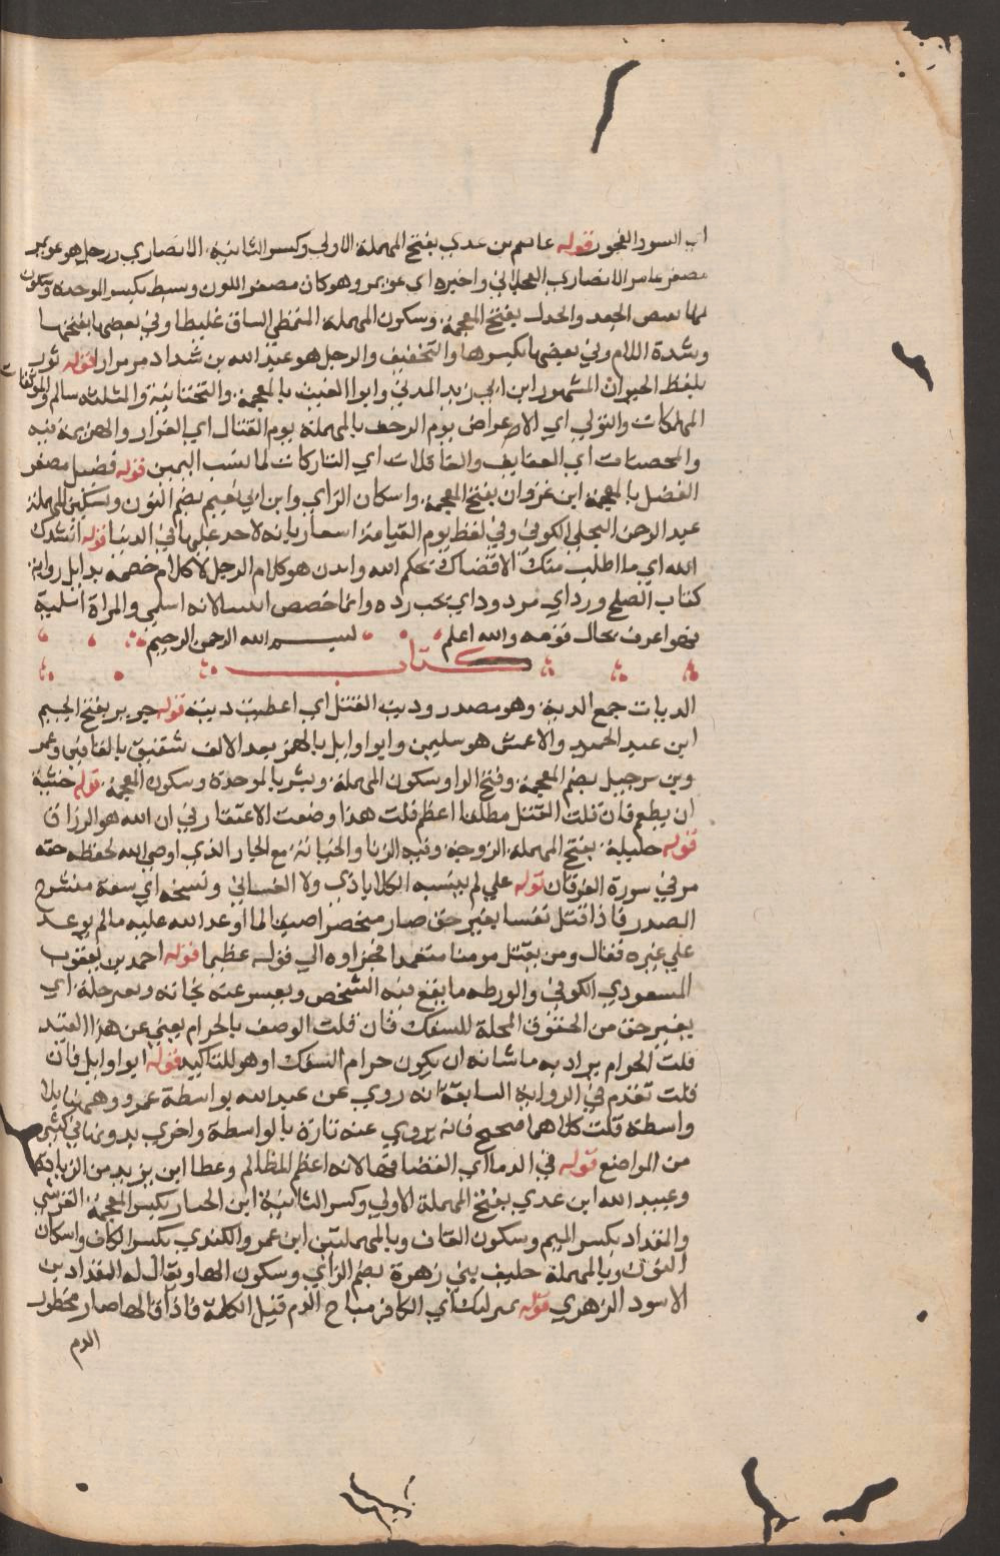 السود الفجور قوله عاصم بن عدي بفتح المهملة الاولي وكسر الثانية الانصاري ورجل هو عويمر
مصغر عامر الانصاري العجلاني واخبره اي عويمر وهو كان مصفر اللون وسبط بكسر الموحدة وسكون
الجعد والخدل بفتح المعجمة وسكون المهملة الممتلي الساق غليظا وفي بعضها بفتحها
وشدة اللام وفي بعضها بكسرها والتخفيف والرجل هو عبد الله بن شداد قوله ثور
بلفظ الحيوان المشهور ابن زيد المدني وابو الغيث بالمعجمة والتحتانية والمثلثة سالم والموبقات
المهلكات والتولي اي الاعراض يوم الزحف بالمهملة يوم القتال اي الفرار والهزيمة فيه
والمحصنات اي العفايف والغافلات اي التاركات لما نسب اليهن قوله فضيل مصغر
الفضل بالمعجمة ابن غزوان بفتح المعجمة واسكان الزاي وابن ابي نعيم بضم النون وتسكين المهملة
عبد الرحمن البجلي الكوفي وفي لفظ يوم القيامة اشعار بانه لاحد عليها في الدنيا قوله انشدك
الله اي ما اطلب منك الا قضاك بحكم الله وايدن هو كلام الرجل لا كلام خصمه بدليل رواية
كتاب الصلح ورد اي مردود اي يجب رده وانما خصص انيسا لانه اسلمي والمراة اسلمية
فهو اعرف بحال قومه والله اعلم بسم الله الرحمن الرحيم
كتاب
الديات جمع الدية وهو مصدر وديت القتيل اي اعطيت ديته قوله جرير بفتح الجيم
ابن عبد الحميد والاعمش هو سليمن وابو وايل بالهمز بعد الالف شقيق بالقافين وعمرو
بن شرحبيل بضم المعجمة وفتح الرا وسكون المهملة وبشر بالموحدة وسكون المعجمة قوله خشية
ان يطعم فان قلت القتل مطلقا اعظم قلت هذا وضعت الاعتقاد في ان الله هو الرزاق
قوله حليلة بفتح المهملة الزوجة وفيه الزنا والخيانة مع الجار الذي اوصي الله لحفظه حقه
مر في سورة الفرقان قوله علي لم ينسبه الكلاباذي ولا الغساني ونسخه اي سعة منشرح
الصدر فاذا قتل نفسا بغير حق صار منحصرا ضيقا لما اوعد الله عليه ما لم يوعد
علي غيره فقال ومن يقتل مومنا متعمدا فجزاوه الي قوله عظيما قوله احمد بن يعقوب
المسعودي الكوفي والورطه ما يقع فيه الشخص ويعسر عنه نجاته وبغير حله اي
بغير حق من الحقوق المحلة للسفك فان قلت الوصف بالحرام يغني عن هذا القيد
قلت الحرام يراد به ما شانه ان يكون حرام السفك او هو للتاكيد قوله ابو وايل فان
قلت تقدم في الرواية السابقة انه روي عن عبد الله بواسطة عمرو وههنا بلا
واسطة قلت كلاهما صحيح فانه يروي عنه تارة بالواسطة واخري بدونها في كثير
من المواضع قوله في الدما اي القضا فيها لانه اعظم المظالم وعطا ابن يزيد من الزيادة
وعبيد الله ابن عدي بفتح المهملة الاولي وكسر الثانية ابن الخيار بكسر المعجمة القرشي
والمقداد بكسر الميم وسكون القاف وبالمهملتين ابن عمرو الكندي بكسر الكاف واسكان
النون وبالمهملة حليف بني زهرة بضم الزاي وسكون الها ويقال له المقداد بن
الاسود الزهري قوله بمنزلتك اي الكافر مباح الدم قبل الكلمة فاذا قالها صار محظور
الدم